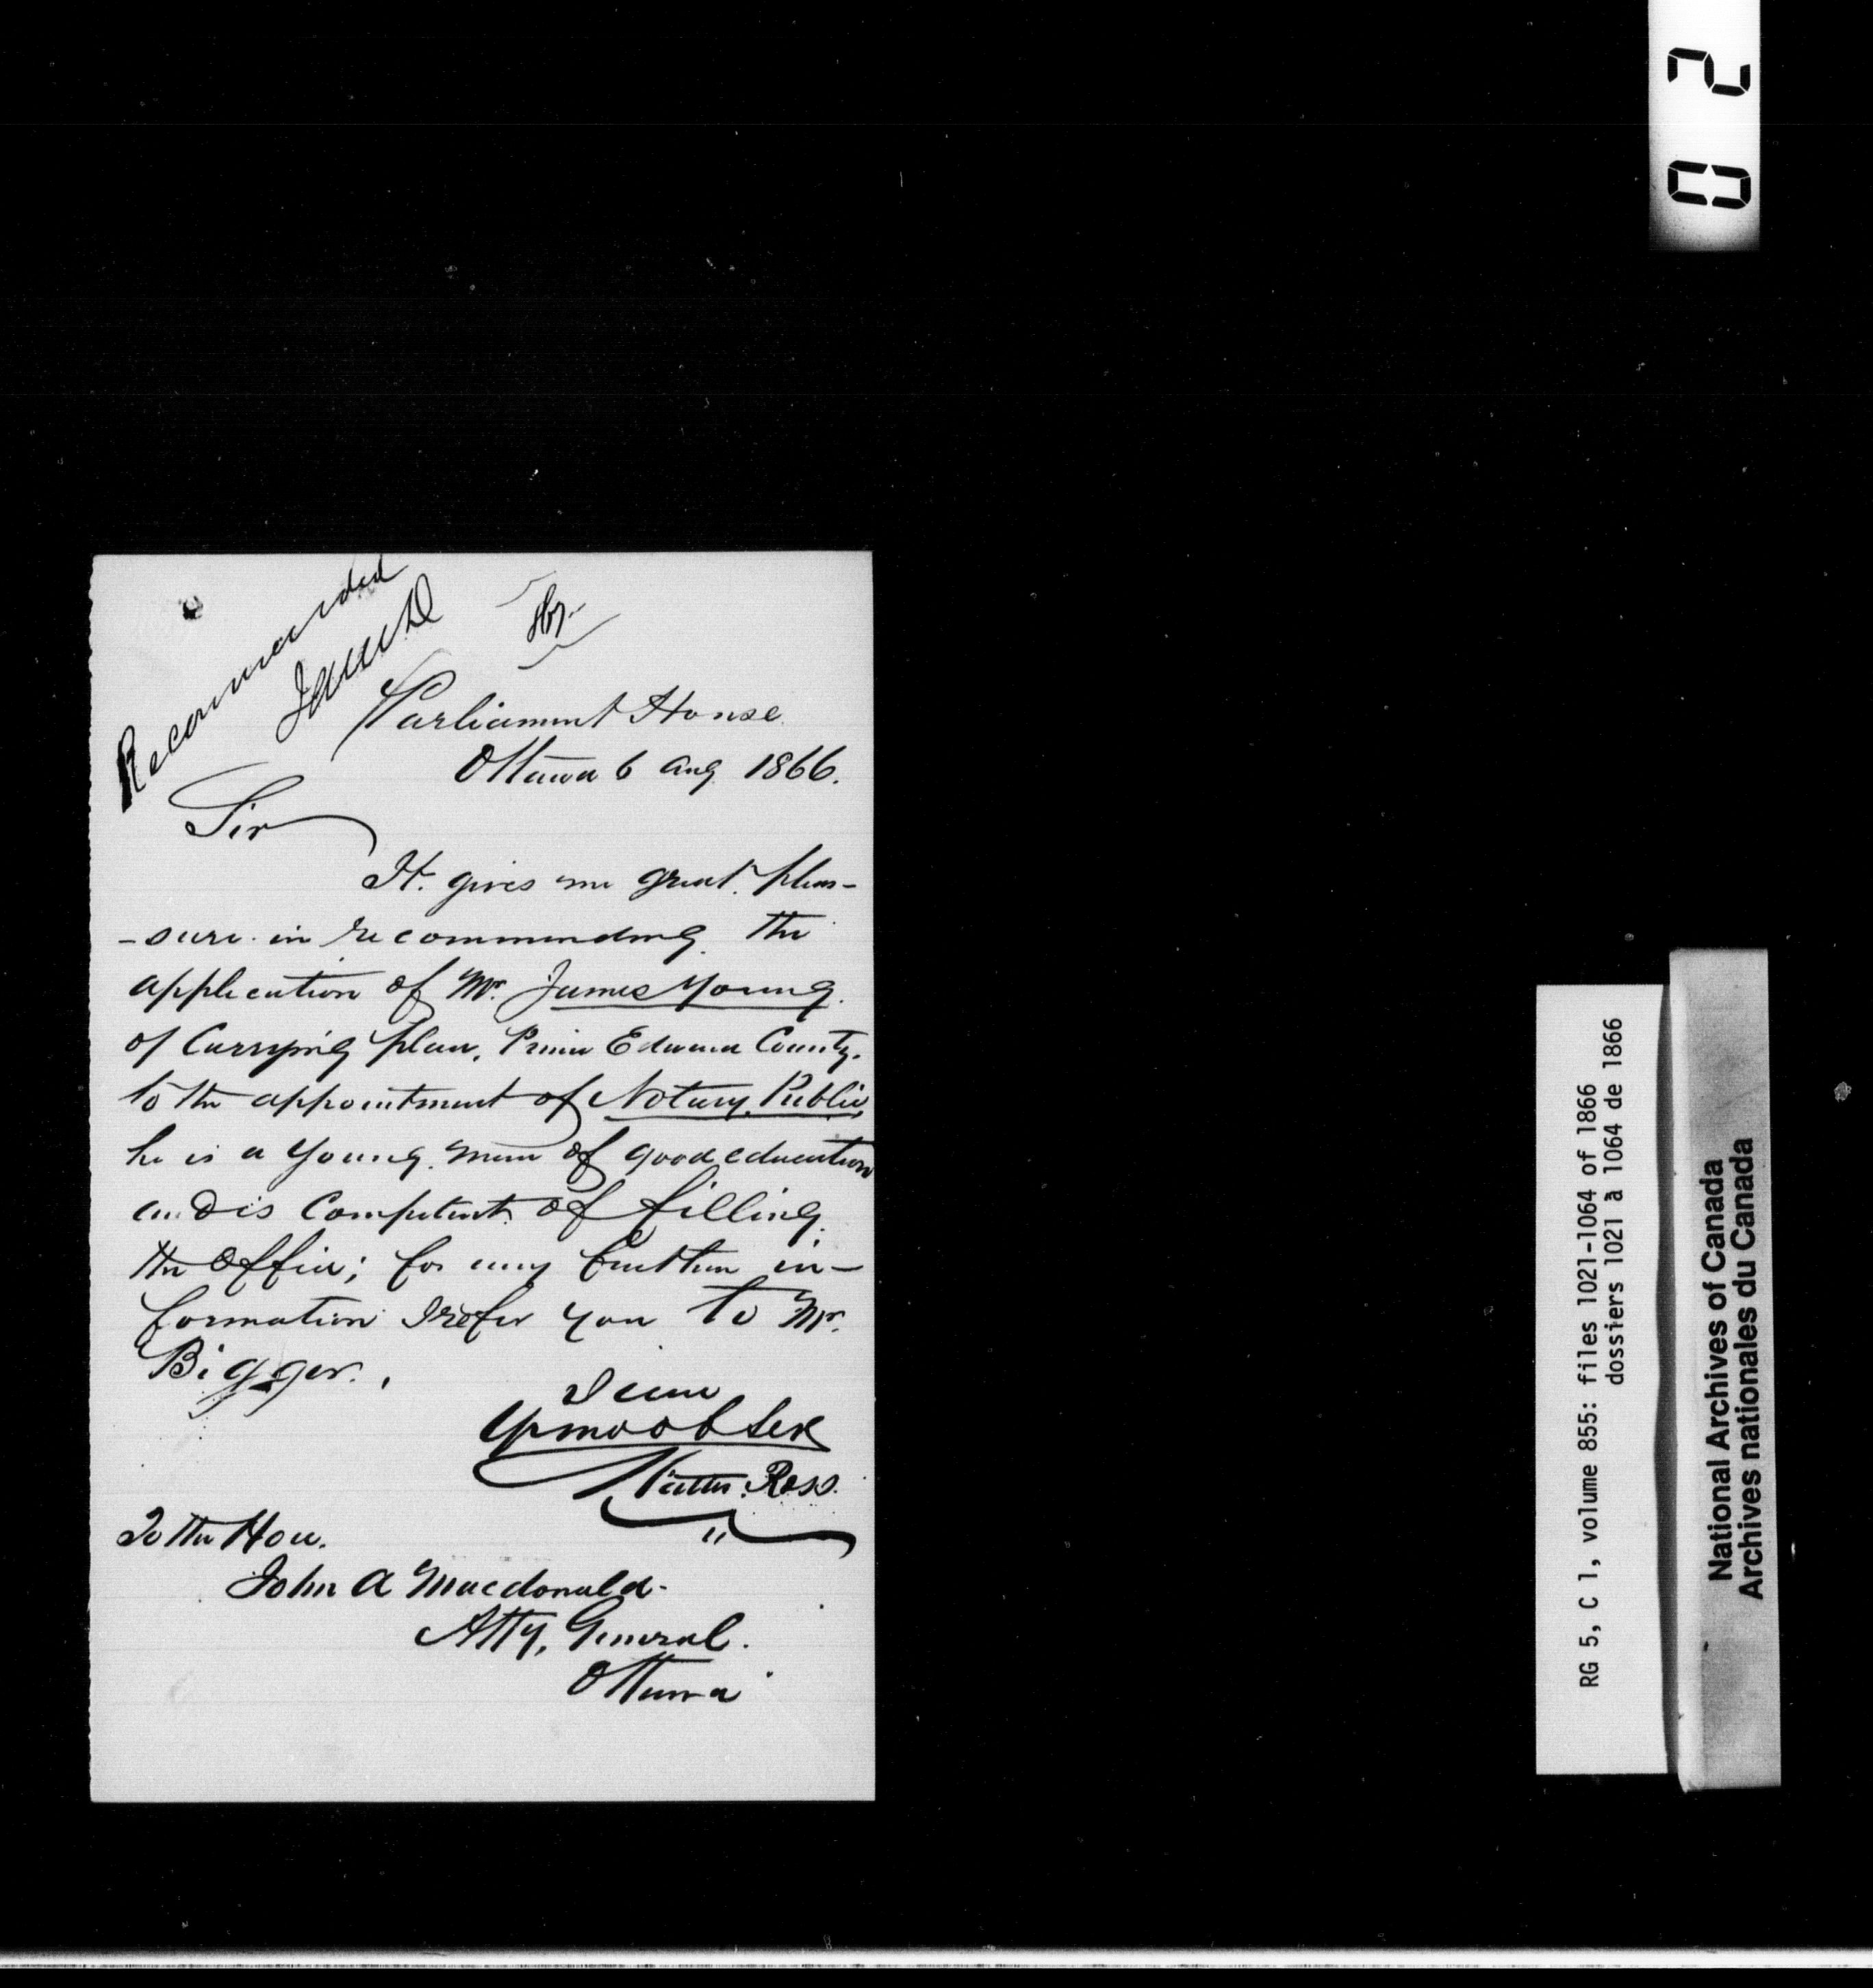 02
Recommended
JAMD
Parliament House
Ottawa 6 Aug 1866.
Sir
It gives me great plea-
-sure in recommending the
application of Mr. James Young
of Carrying place, Prince Edward County.
to the appointment of Notary Public,
he is a young man of good education
and is Competent of filling
the office; for any further in-
formation I refer you to Mr.
Bigger.,
I am
Ross.
To the Hon.
John A Macdonald-
Atty, General.
Ottawa
RG 5, C 1, volume 855: files 1021-1064 of 1866
dossiers 1021 à 1064 de 1866
National Archives of Canada
Archives nationales du Canada